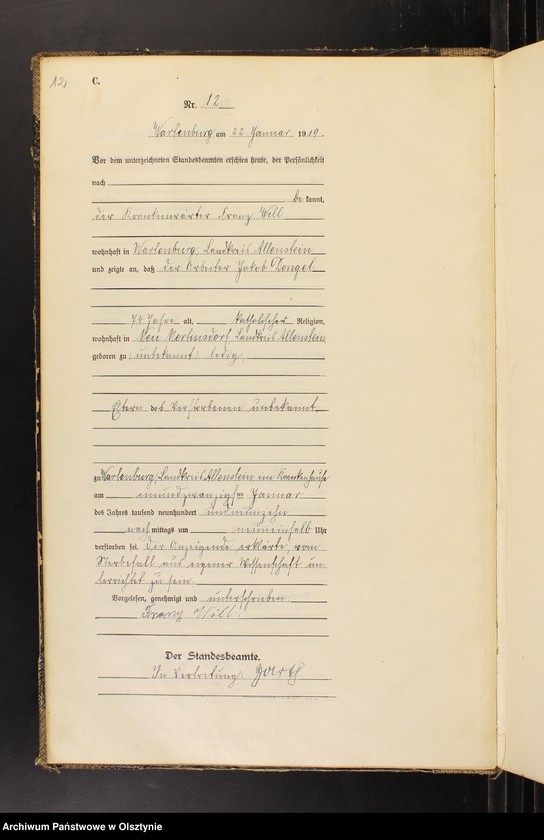 12
C.
Nr. 12
Wartenburg am 22 Januar 1919.
Vor dem unterzeichneten Standesbeamten erschien heute, der Persönlichkeit
nach
be kannt,
der Krankenwärter Franz Will
wohnhaft in Wartenburg, Landkreis Allenstein
und zeigte an, daß der Arbeiter Jakob Dongel
74 Jahre alt, katholischer Religion,
wohnhaft in Neu Mertinsdorf, Landkreis Allenstein
geboren zu (unbekannt) ledig,
Eltern des Verstorbenen unbekannt,
zu Wartenburg, Landkreis Allenstein, im Krankenhause
am einundzwanzigsten Januar
des Jahres tausend neunhundert und neunzehn
nach mittags um neuneinhalb Uhr
verstorben sei. Der Anzeigende erklärte, vom
Sterbefall aus eigener Wissenschaft un-
terrichtet zu sein.
Vorgelesen, genehmigt und unterschrieben:
Franz Will.
Der Standesbeamte.
In Vertretung:
Archiwum Państwowe w Olsztynie